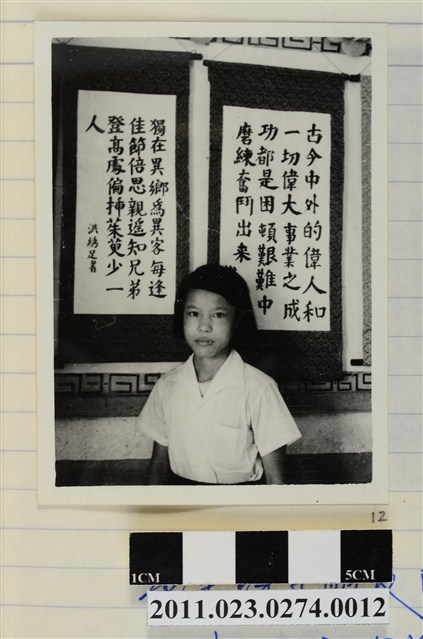 古今中外的偉人和
一切偉大事業之成
功都是困頓艱難中
磨練奮鬥出来
獨在異鄉為異客每逢
佳節倍思親遙知兄弟
登高處偏挿茱萸少一
人
洪綉足書
12
1CM
5CM
2011.023.0274.0012